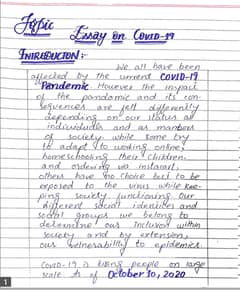 Topic
Essay on Covid-19
INTRODUCTON:-
We all have been
affected by the current COVID-19
Pandemic. However the impact
of the pandamic and its con-
sequences are felt differently
depending on our status as
individuals and as members
of society. while some try
to adapt to working online,
homeschooling their children
and ordering via instacart,
others have no choice but to be
exposed to the virus while kee-
ping society functioning. Our
different social identities and
social groups we belong to
determine our inclusion within
society and by extension,
our vulnerability to epidemics.
Covid-19 is killing people on large
scale. As of October 10, 2020
1